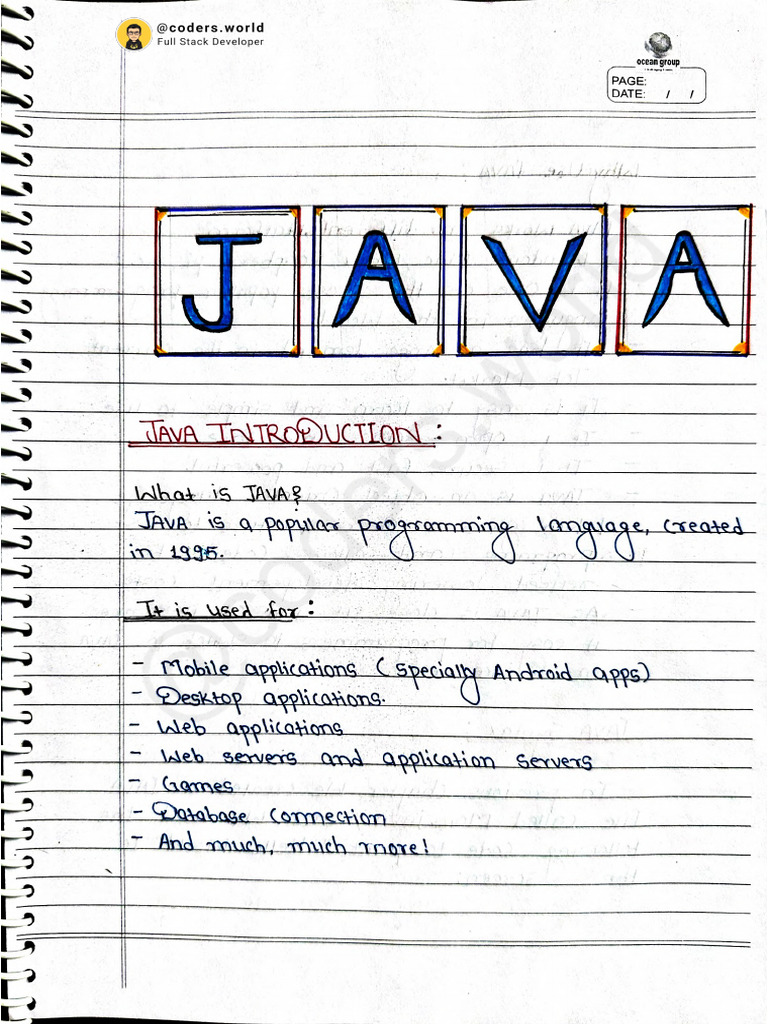 @coders.world
Full Stack Developer
ocean group
PAGE:
DATE: / /
JAVA
JAVA INTRODUCTION:
What is JAVA?
JAVA is a popular programming language, created
in 1995.
It is used for:
- Mobile applications (specially Android apps)
- Desktop applications.
- Web applications
- Web servers and application servers
- Games
- Database connection
- And much, much more!
@coders.world